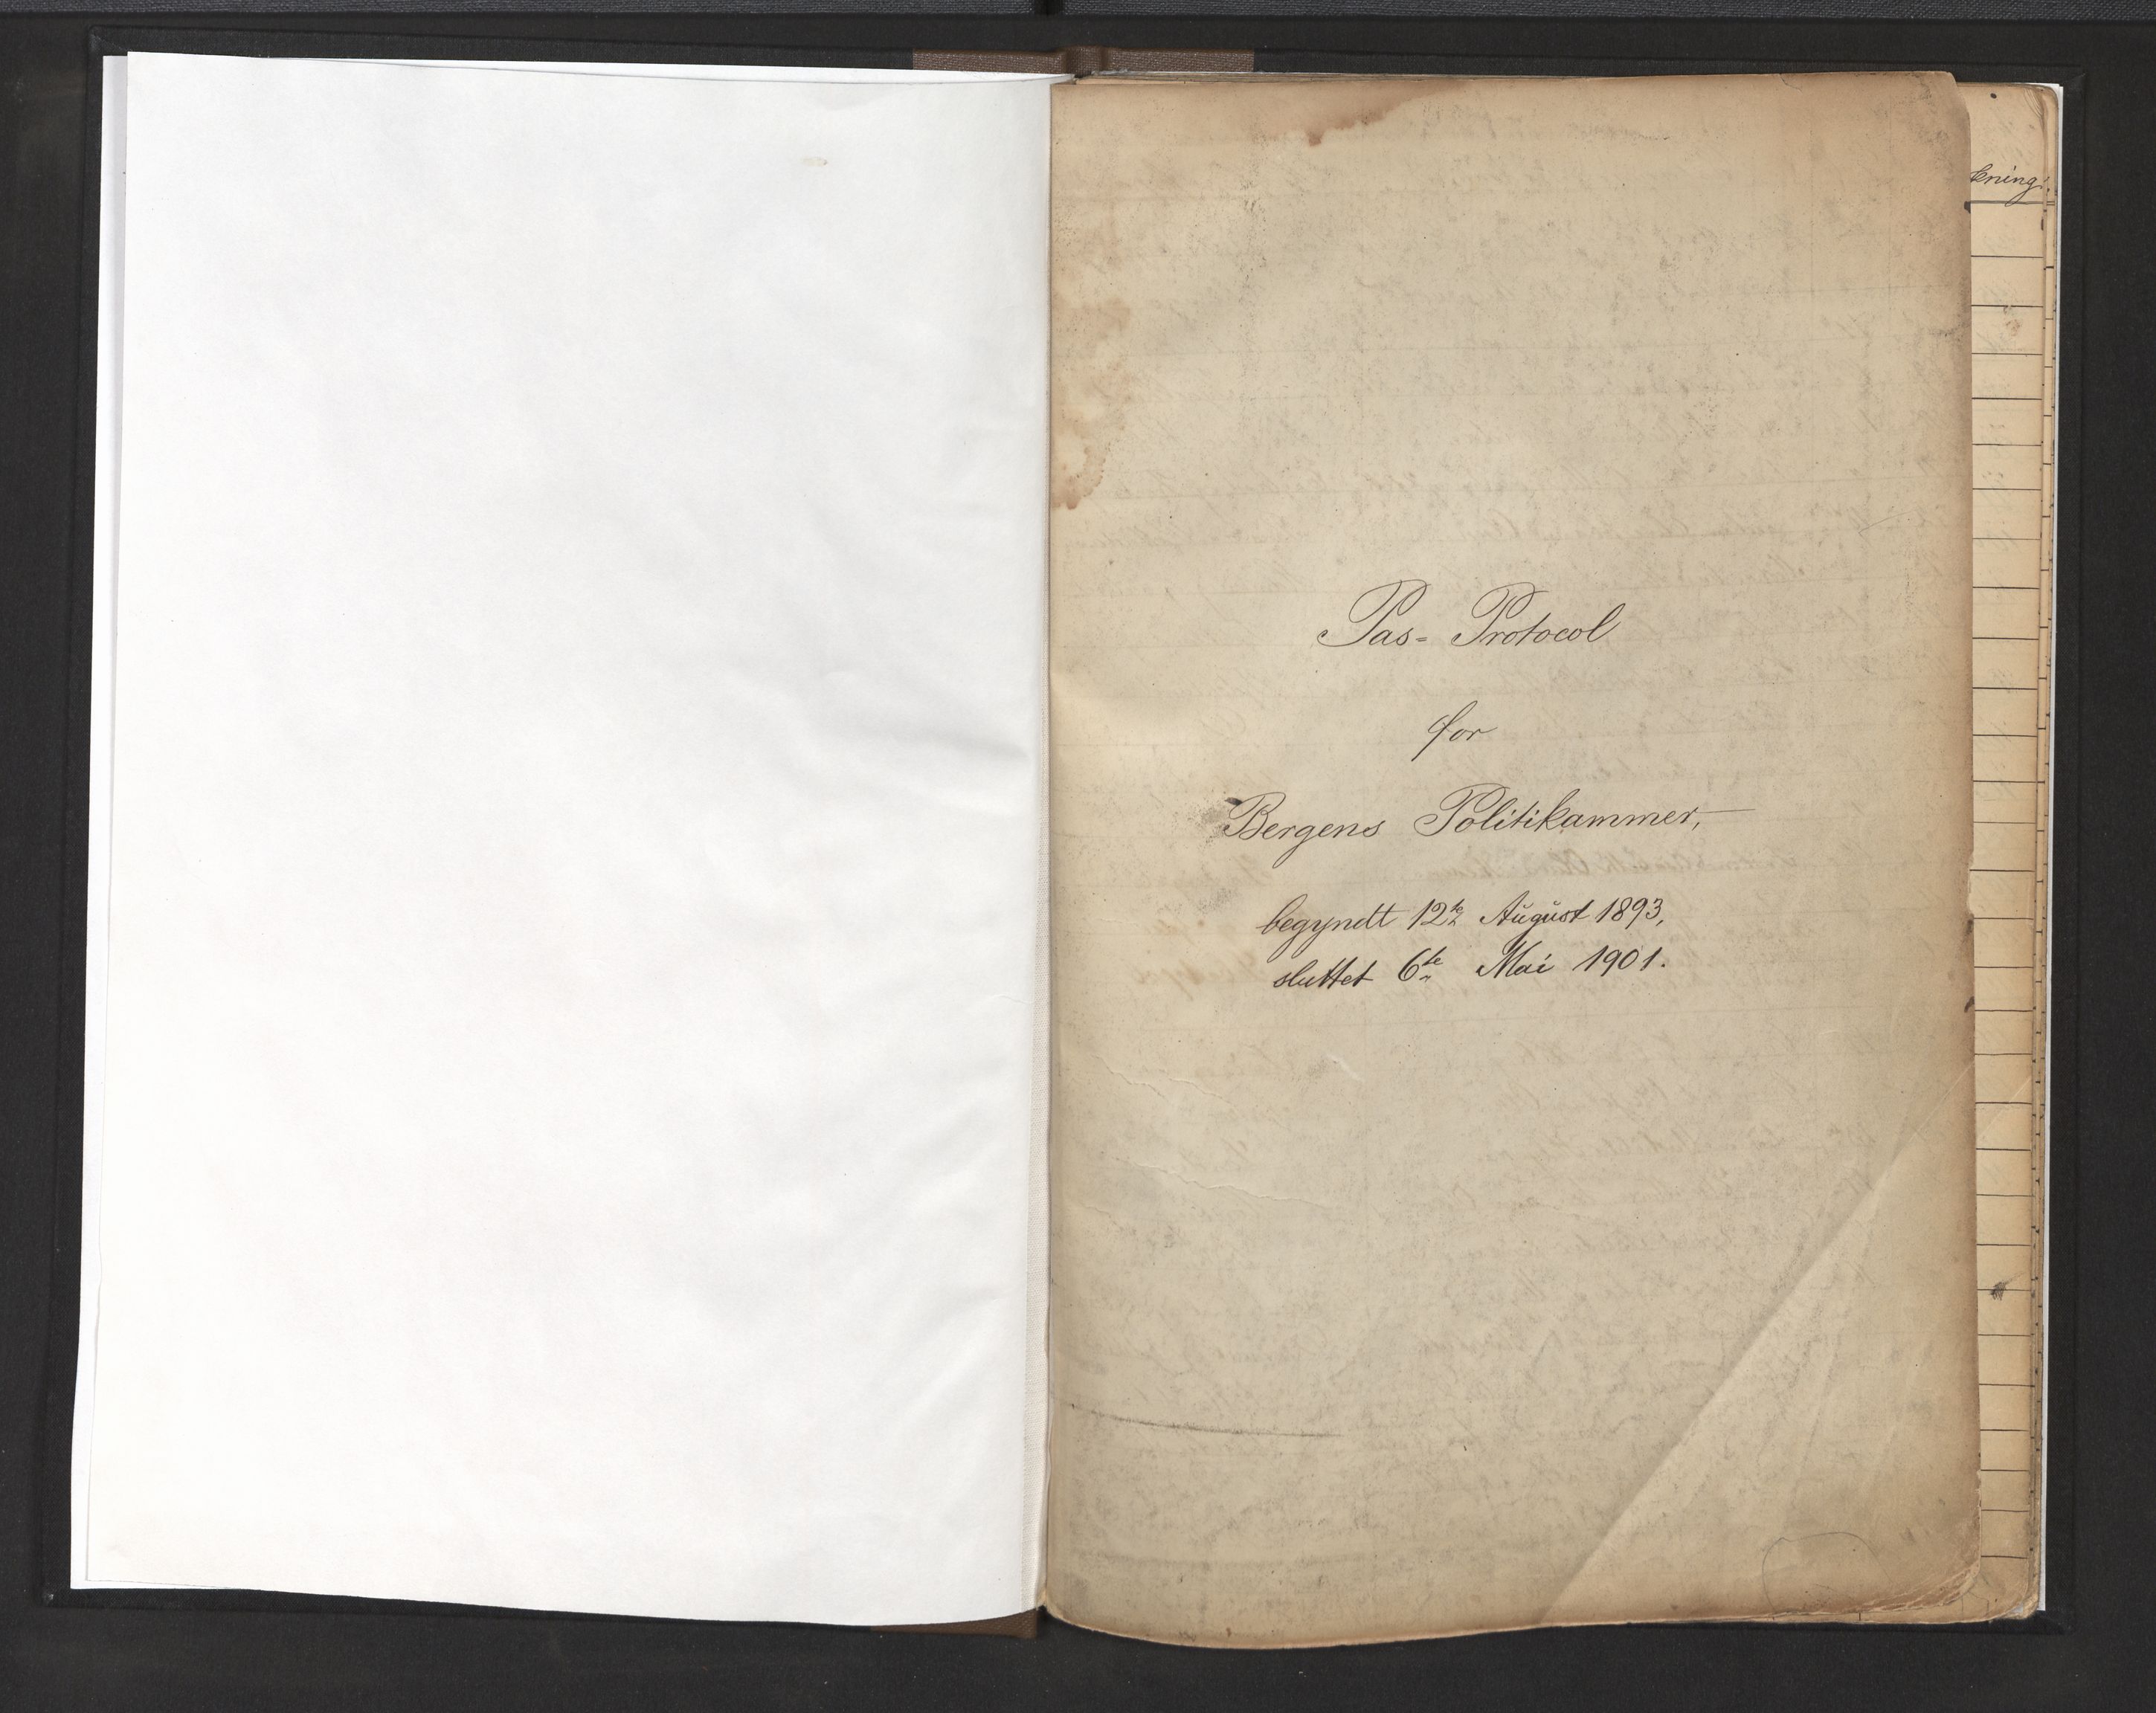 Pas- Protocol
for
Bergens Politikammer,
begyndt 12te August 1893,
sluttet 6te Mai 1901.
kning.